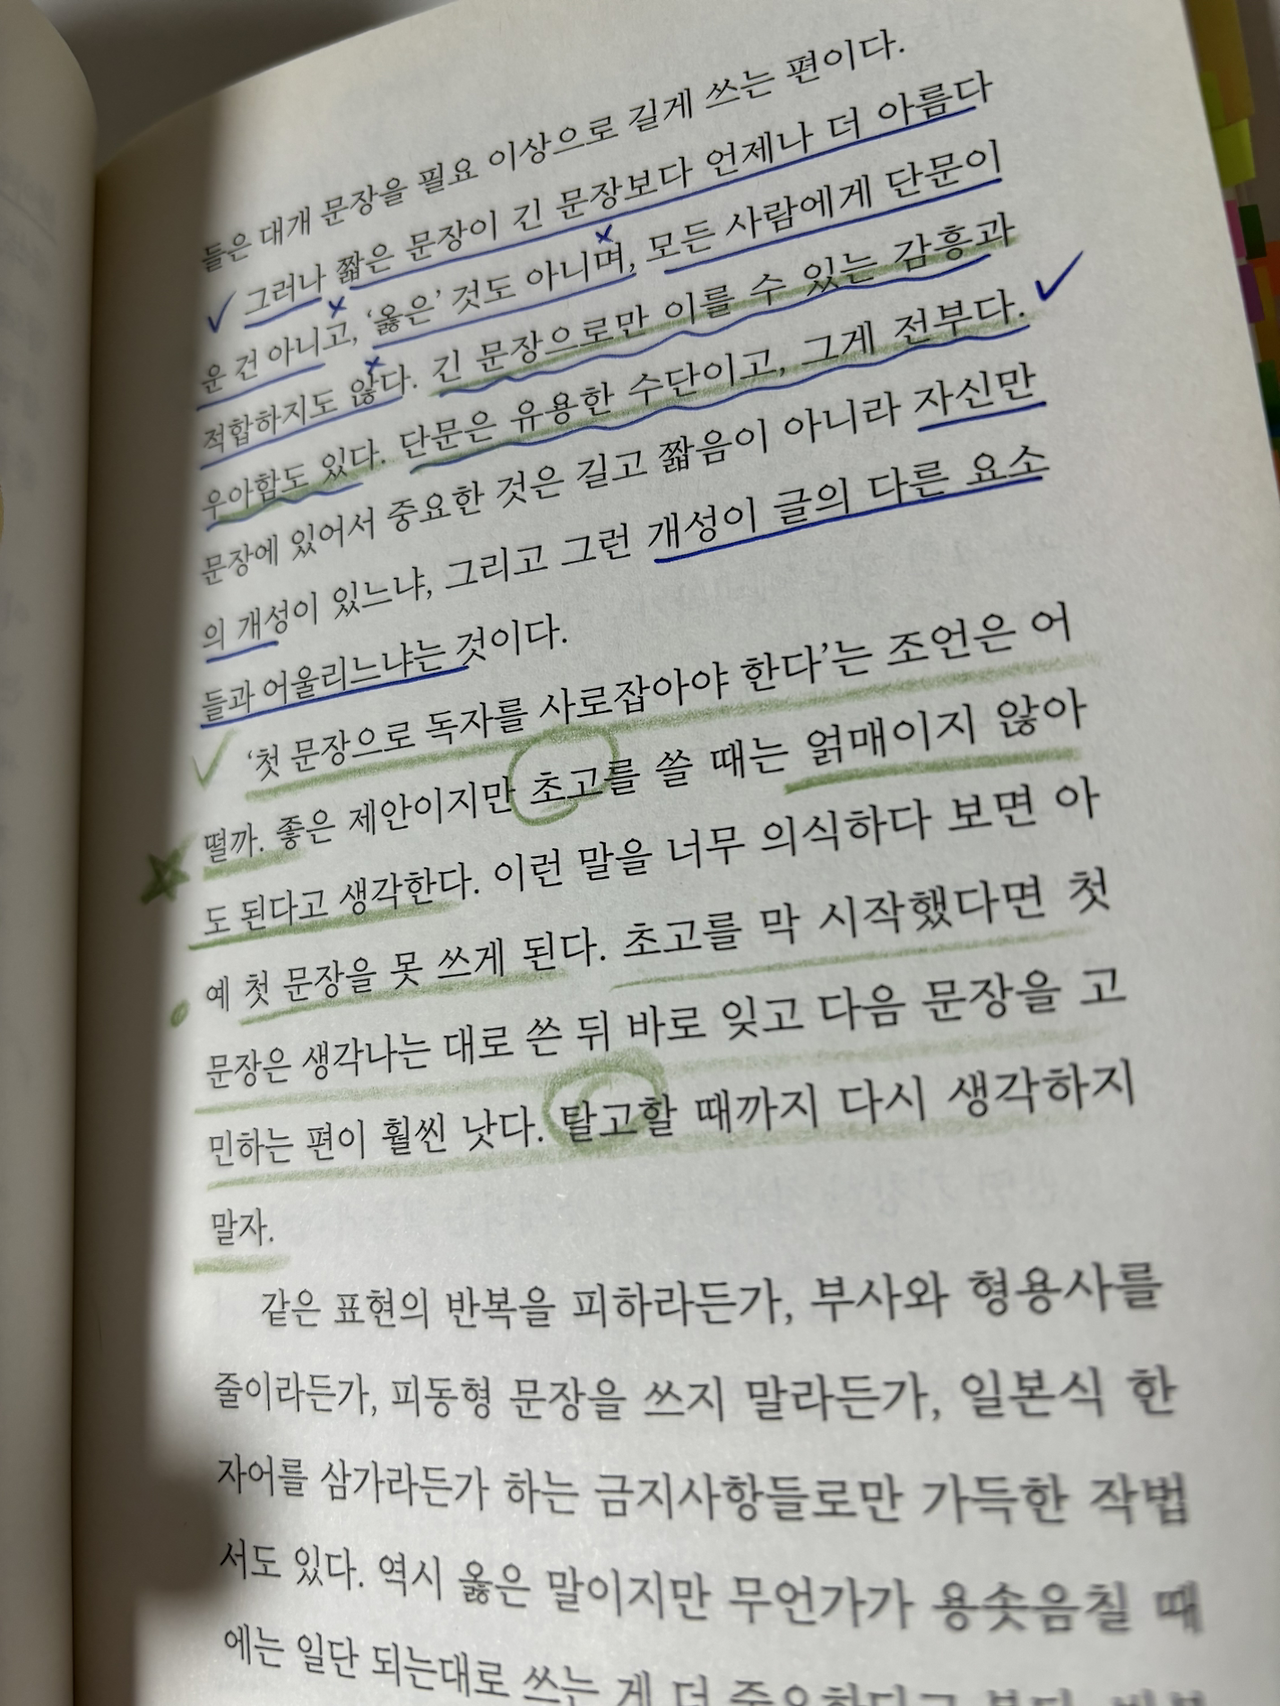 들은 대개 문장을 필요 이상으로 길게 쓰는 편이다.
그러나 짧은 문장이 긴 문장보다 언제나 더 아름다
운 건 아니고, ‘옳은’ 것도 아니며, 모든 사람에게 단문이
적합하지도 않다. 긴 문장으로만 이를 수 있는 감흥과
우아함도 있다. 단문은 유용한 수단이고, 그게 전부다.
문장에 있어서 중요한 것은 길고 짧음이 아니라 자신만
의 개성이 있느냐, 그리고 그런 개성이 글의 다른 요소
들과 어울리느냐는 것이다.
‘첫 문장으로 독자를 사로잡아야 한다’는 조언은 어
떨까. 좋은 제안이지만 초고를 쓸 때는 얽매이지 않아
도 된다고 생각한다. 이런 말을 너무 의식하다 보면 아
예 첫 문장을 못 쓰게 된다. 초고를 막 시작했다면 첫
문장은 생각나는 대로 쓴 뒤 바로 잊고 다음 문장을 고
민하는 편이 훨씬 낫다. 탈고할 때까지 다시 생각하지
말자.
같은 표현의 반복을 피하라든가, 부사와 형용사를
줄이라든가, 피동형 문장을 쓰지 말라든가, 일본식 한
자어를 삼가라든가 하는 금지사항들로만 가득한 작법
서도 있다. 역시 옳은 말이지만 무언가가 용솟음칠 때
에는 일단 되는대로 쓰는 게 더 중요하다고